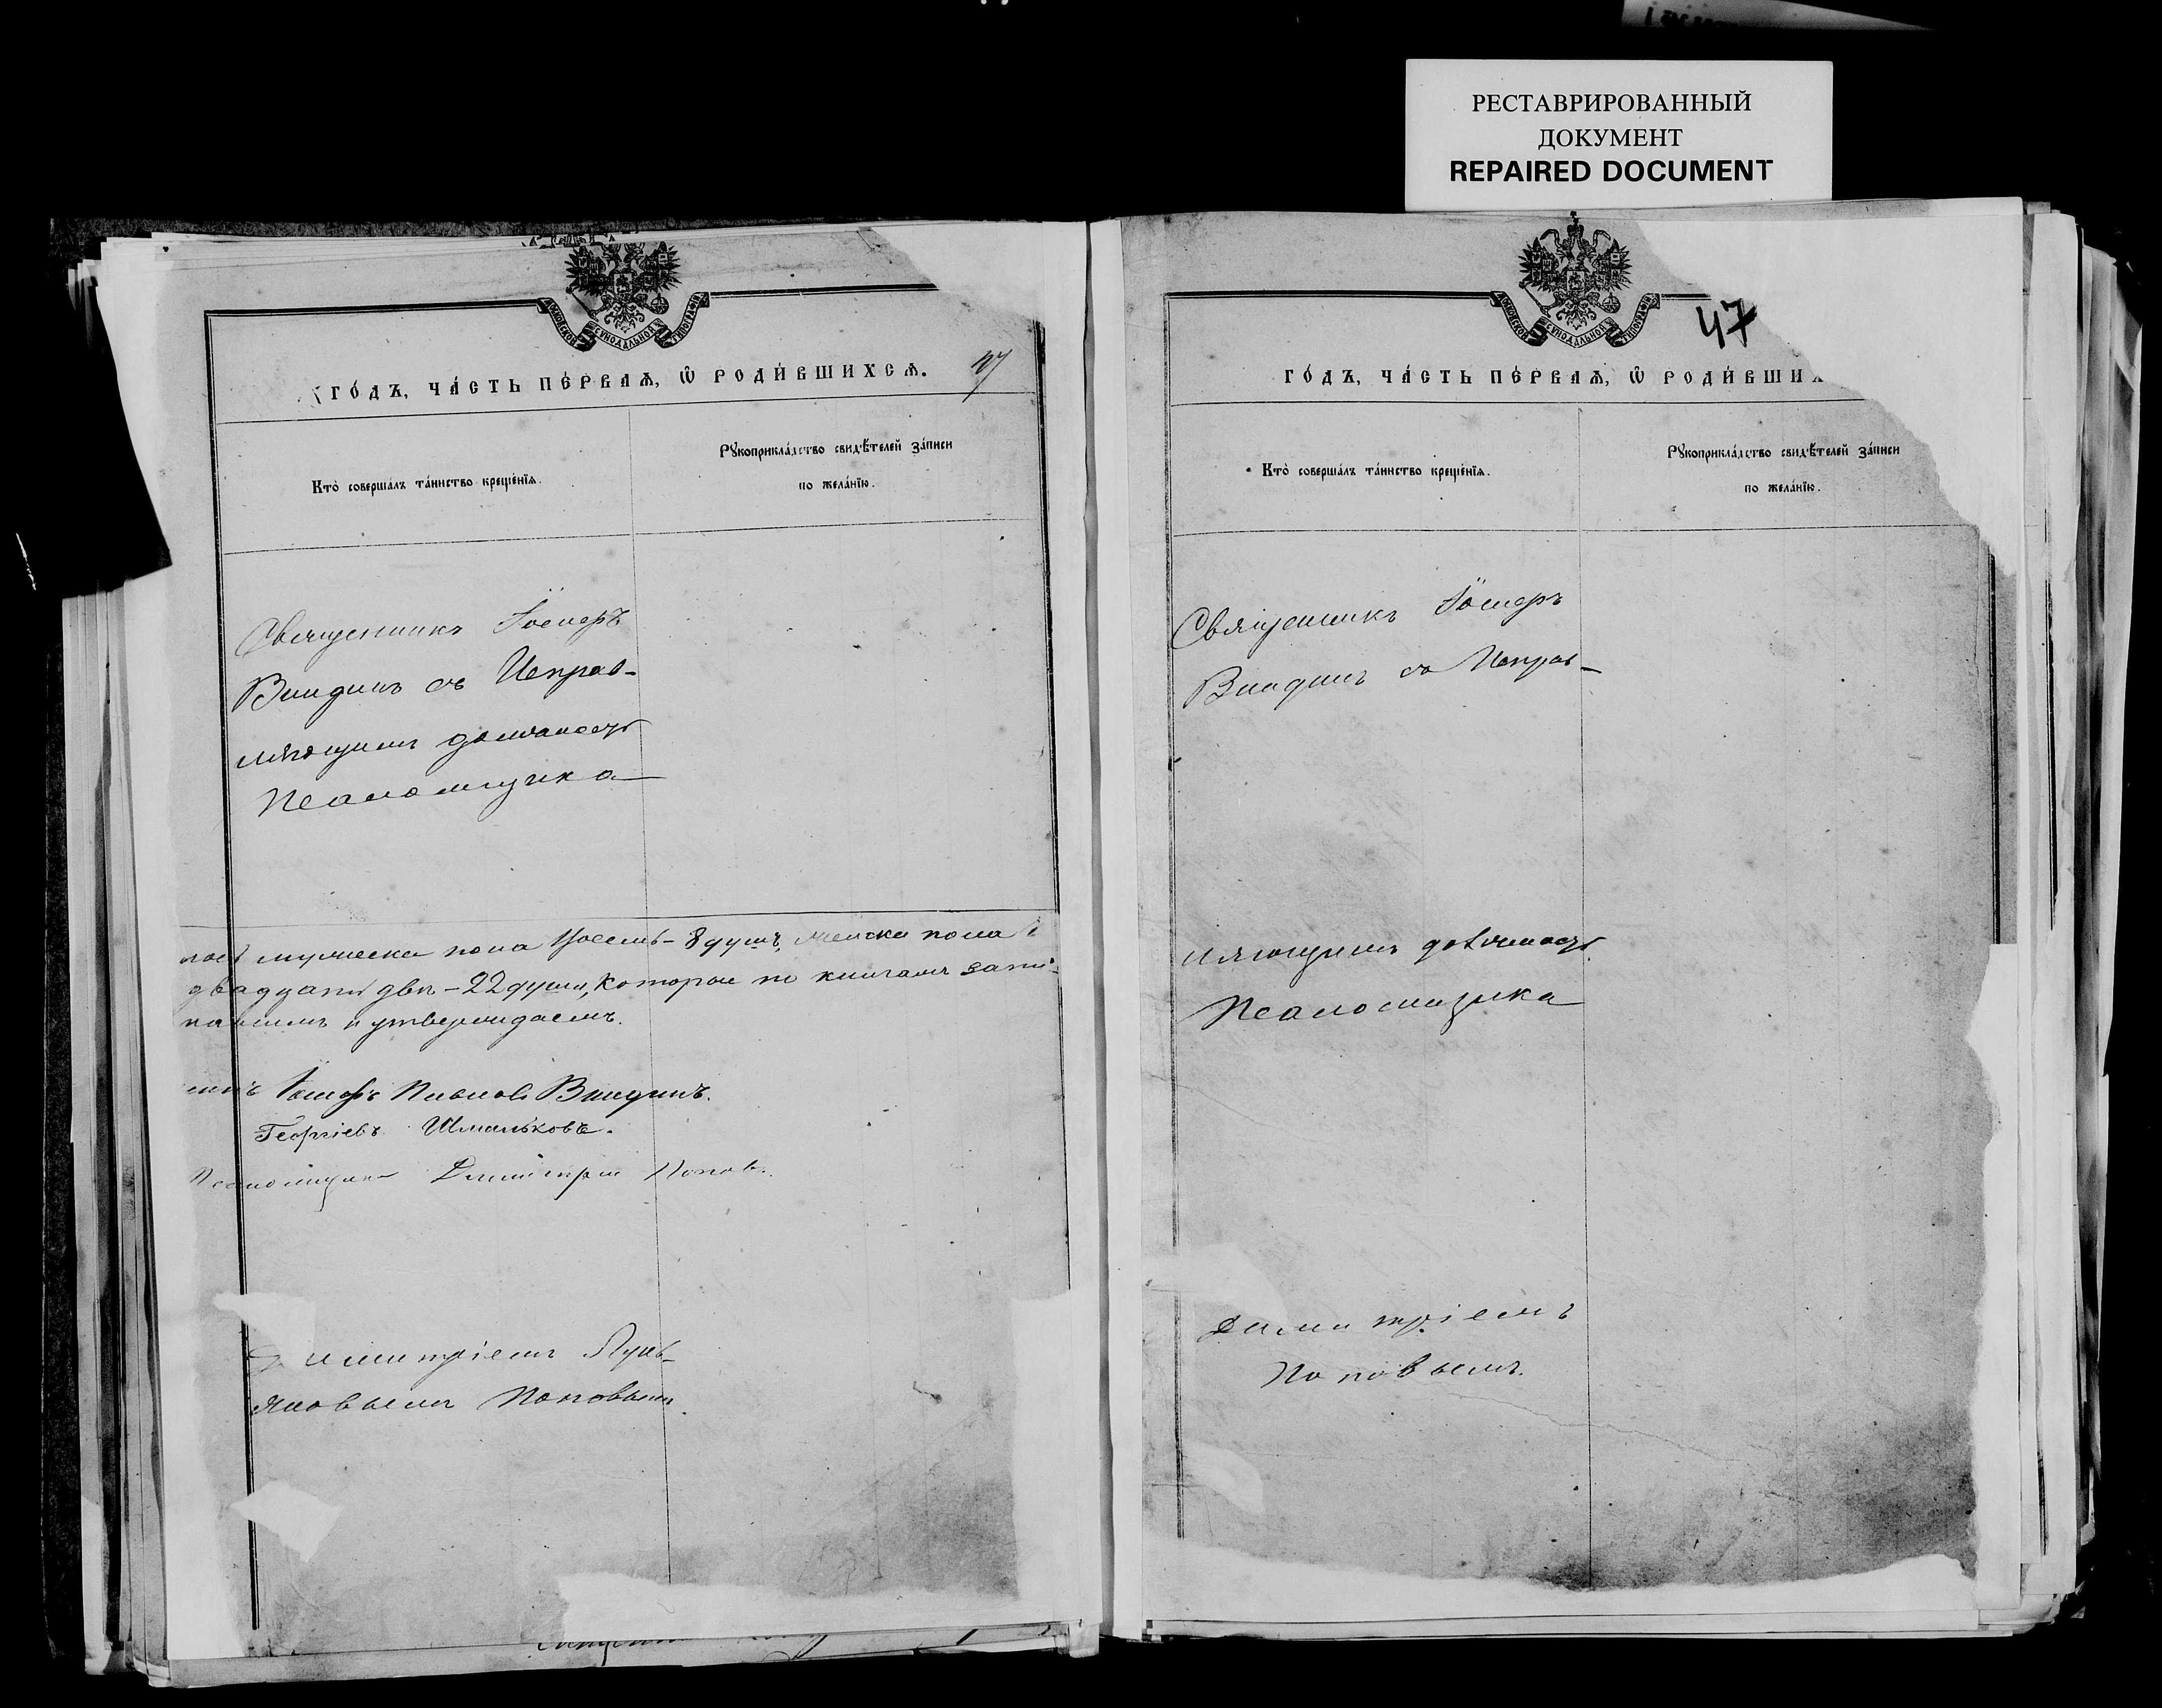 РЕСТАВРИРОВАННЫЙ
ДОКУМЕНТ
REPAIRED DOCUMENT
МОСКОВСКОЙ СУНОДАЛЬНОЙ ТИПОГРАФІИ
ГО́ДЪ, ЧА́СТЬ ПЕ́РВАѦ, Ѿ РОДИ́ВШИХСѦ.
Кто̀ соверша́лъ та́инство креще́нїѧ.
Рꙋкоприкла́дство свидѣ́телей за́писи
по жела́нїю.
Священникъ Іосифъ
Виидинъ съ Исправ-
ляющимъ должность
Псаломщика
мужеска пола восемь - 8 душъ, женска пола
двадцать двѣ - 22 души, которые по книгамъ запи-
и утверждаемъ.
Іосифъ Виидинъ.
Георгіевъ Шмальковъ.
Псаломщика Димитрій Попов
Димитріемъ Лукь-
яновымъ Поповымъ.
МОСКОВСКОЙ СУНОДАЛЬНОЙ ТИПОГРАФІИ
47
ГО́ДЪ, ЧА́СТЬ ПЕ́РВАѦ, Ѿ РОДИ́ВШИХ
Кто̀ соверша́лъ та́инство креще́нїѧ.
Рꙋкоприкла́дство свидѣ́телей за́писи
по жела́нїю.
Священникъ Іосифъ
Виидинъ съ Исправ-
ляющимъ должность
Псаломщика
Димитріемъ
Поповымъ.